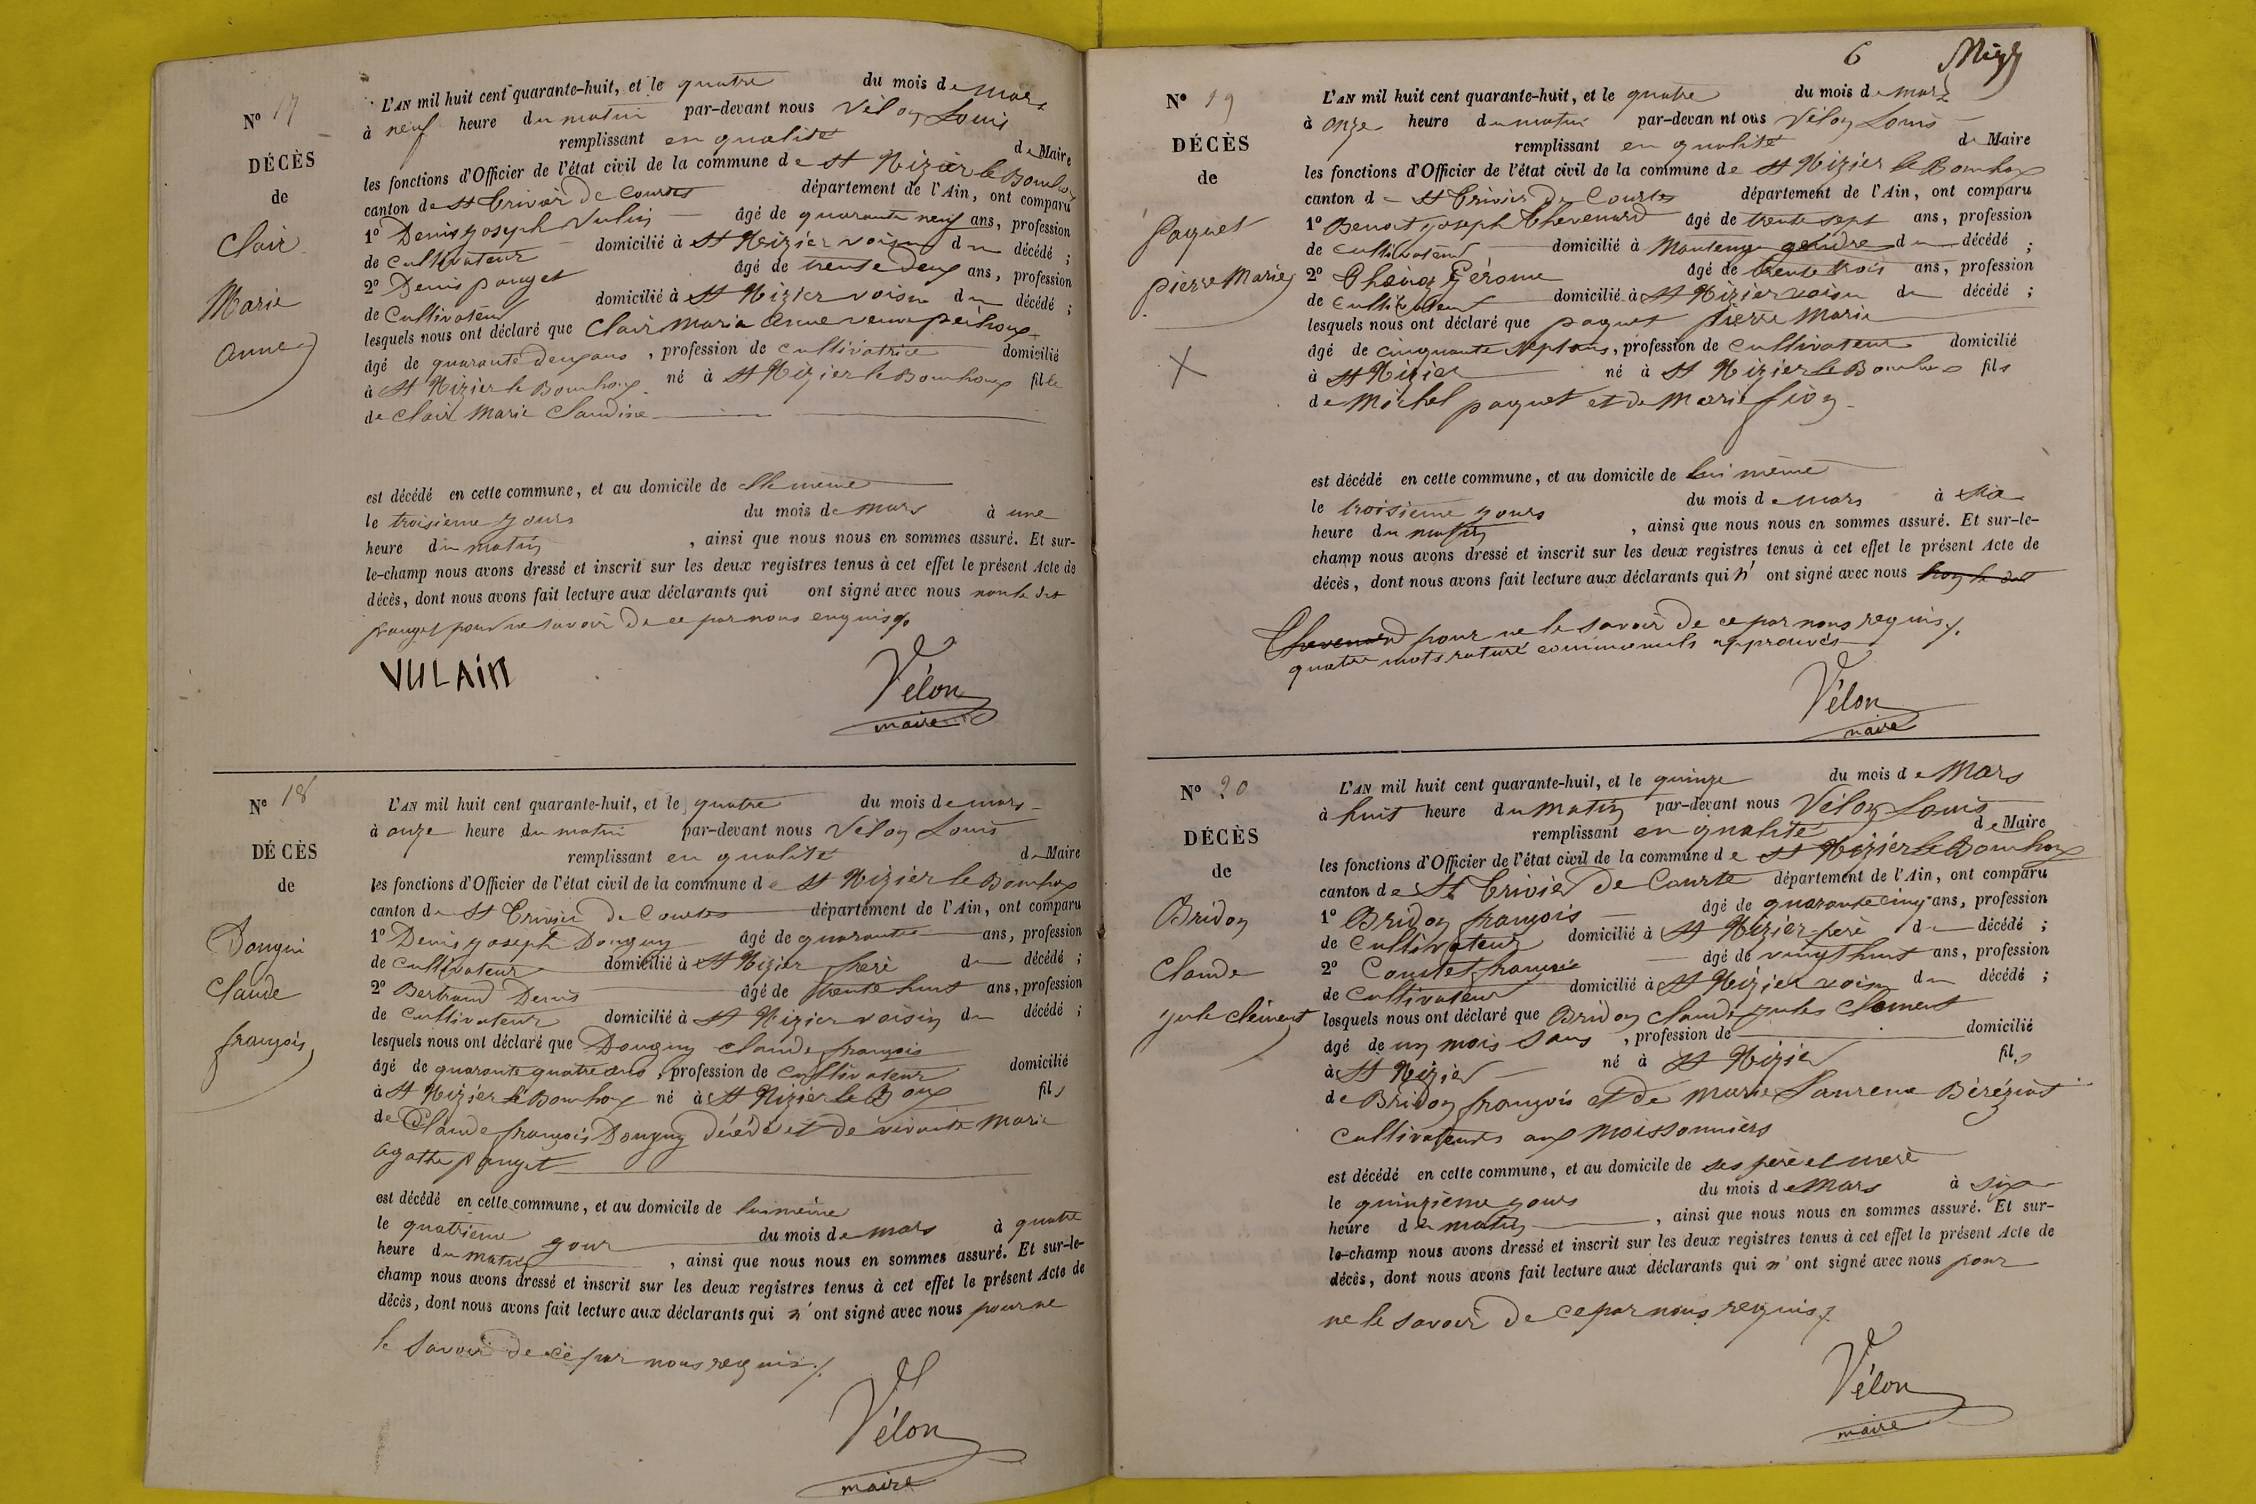 N° 17
DÉCÈS
de
Clair
Marie
anne
L'AN mil huit cent quarante-huit, et le quatre du mois de mars
à neuf heure du matin par-devant nous Vélon Louis
remplissant en qualité de Maire
les fonctions d'Officier de l'état civil de la commune de St Nizier le Bouhoux
canton de St Trivier De Courtes département de l'Ain, ont comparu
1° Denis joseph Vulin âgé de quarante neuf ans, profession
de Cultivateur domicilié à St Nizier voisin du décédé ;
2° Denis pauget âgé de trente deux ans, profession
de Cultivateur domicilié à St Nizier voisin du décédé ;
lesquels nous ont déclaré que Clair Maria Anne veuve
âgé de quarante deux ans, profession de Cultivatrice domicilié
à St Nizier le Bouhoux né à St Nizier le Bouhoux fille
de Clair Marie Claudine
est décédé en cette commune, et au domicile de Elle même
le troisieme jours du mois de mars à une
heure du matin, ainsi que nous nous en sommes assuré. Et sur-
le-champ nous avons dressé et inscrit sur les deux registres tenus à cet effet le présent Acte de
décès, dont nous avons fait lecture aux déclarants qui ont signé avec nous non le dit
pauget pour ne savoir De ce par nous enquis
VULAiN
Vélon
maire
N° 18
DÉCÈS
de
Dougui
Claude
françois
L'AN mil huit cent quarante-huit, et le quatre du mois de mars
à onze heure du matin par-devant nous Vélon Louis
remplissant en qualité de Maire
les fonctions d'Officier de l'état civil de la commune de St Nizier le Bouhoux
canton de St Trivier De Courtes département de l'Ain, ont comparu
1° Denis joseph Douguy âgé de quarante ans, profession
de Cultivateur domicilié à St Nizier frere du décédé ;
2° Bertrand Denis âgé de trente huit ans, profession
de Cultivateur domicilié à St Nizier voisin du décédé ;
lesquels nous ont déclaré que Douguy claude françois
âgé de quarante quatre ans, profession de Cultivateur domicilié
à St Nizier le Bouhoux né à St Nizier le Boux fils
de Claude françois Douguy décédé et de vivante Marie
agathe pauget
est décédé en cette commune, et au domicile de lui même
le quatrieme jour du mois de mars à quatre
heure du matin, ainsi que nous nous en sommes assuré. Et sur-le-
champ nous avons dressé et inscrit sur les deux registres tenus à cet effet le présent Acte de
décès, dont nous avons fait lecture aux déclarants qui n'ont signé avec nous pour ne
le Savoir de ce par nous requis ./.
Vélon
maire
6
N° 19
DÉCÈS
de
paquet
pierre Marie
L'AN mil huit cent quarante-huit, et le quatre du mois de mars
à onze heure du matin par-devan nt ous Vélon Louis
remplissant en qualité de Maire
les fonctions d'Officier de l'état civil de la commune de St Nizier le Bouhoux
canton de St Trivier De Courtes département de l'Ain, ont comparu
1° Benoit joseph Chevenard âgé de trente sept ans, profession
de Cultivateur domicilié à Mantenay gendre du décédé ;
2° Gérome âgé de trente trois ans, profession
de Cultivateur domicilié à St Nizier voisin du décédé ;
lesquels nous ont déclaré que paquet pierre Marie
âgé de cinquante sept ans, profession de Cultivateur domicilié
à St Nizier né à St Nizier le Bouhoux fils
de Michel paquet et de Marie fion
est décédé en cette commune, et au domicile de lui même
le troisieme jours du mois de mars à six
heure du matin, ainsi que nous nous en sommes assuré. Et sur-le-
champ nous avons dressé et inscrit sur les deux registres tenus à cet effet le présent Acte de
décès, dont nous avons fait lecture aux déclarants qui n' ont signé avec nous
Chevenard pour ne le savoir De ce par nous requis ./.
quatre mots raturé comme nuls approuvés
Vélon
maire
N° 20
DÉCÈS
de
Bridon
Claude
jule clément
L'AN mil huit cent quarante-huit, et le quinze du mois de Mars
à huit heure du Matin par-devant nous Vélon Louis
remplissant en qualité de Maire
les fonctions d'Officier de l'état civil de la commune de St Nizier le Bouhoux
canton de St Trivier De Courte département de l'Ain, ont comparu
1° Bridon françois âgé de quarante cinq ans, profession
de Cultivateur domicilié à St Nizier père du décédé ;
2° françois âgé de vingt huit ans, profession
de Cultivateur domicilié à St Nizier voisin du décédé ;
lesquels nous ont déclaré que Bridon claude jules Clement
âgé de un mois Sans, profession de domicilié
à St Nizier né à St Nizier fils
de Bridon françois et de Marie Laurence Béréziat
Cultivateurs aux Moissonniers
est décédé en cette commune, et au domicile de ses père et mere
le quinzieme jours du mois de Mars à six
heure du matin, ainsi que nous nous en sommes assuré. Et sur-
le-champ nous avons dressé et inscrit sur les deux registres tenus à cet effet le présent Acte de
décès, dont nous avons fait lecture aux déclarants qui n'ont signé avec nous pour
ne le savoir De ce par nous requis ./.
Vélon
maire